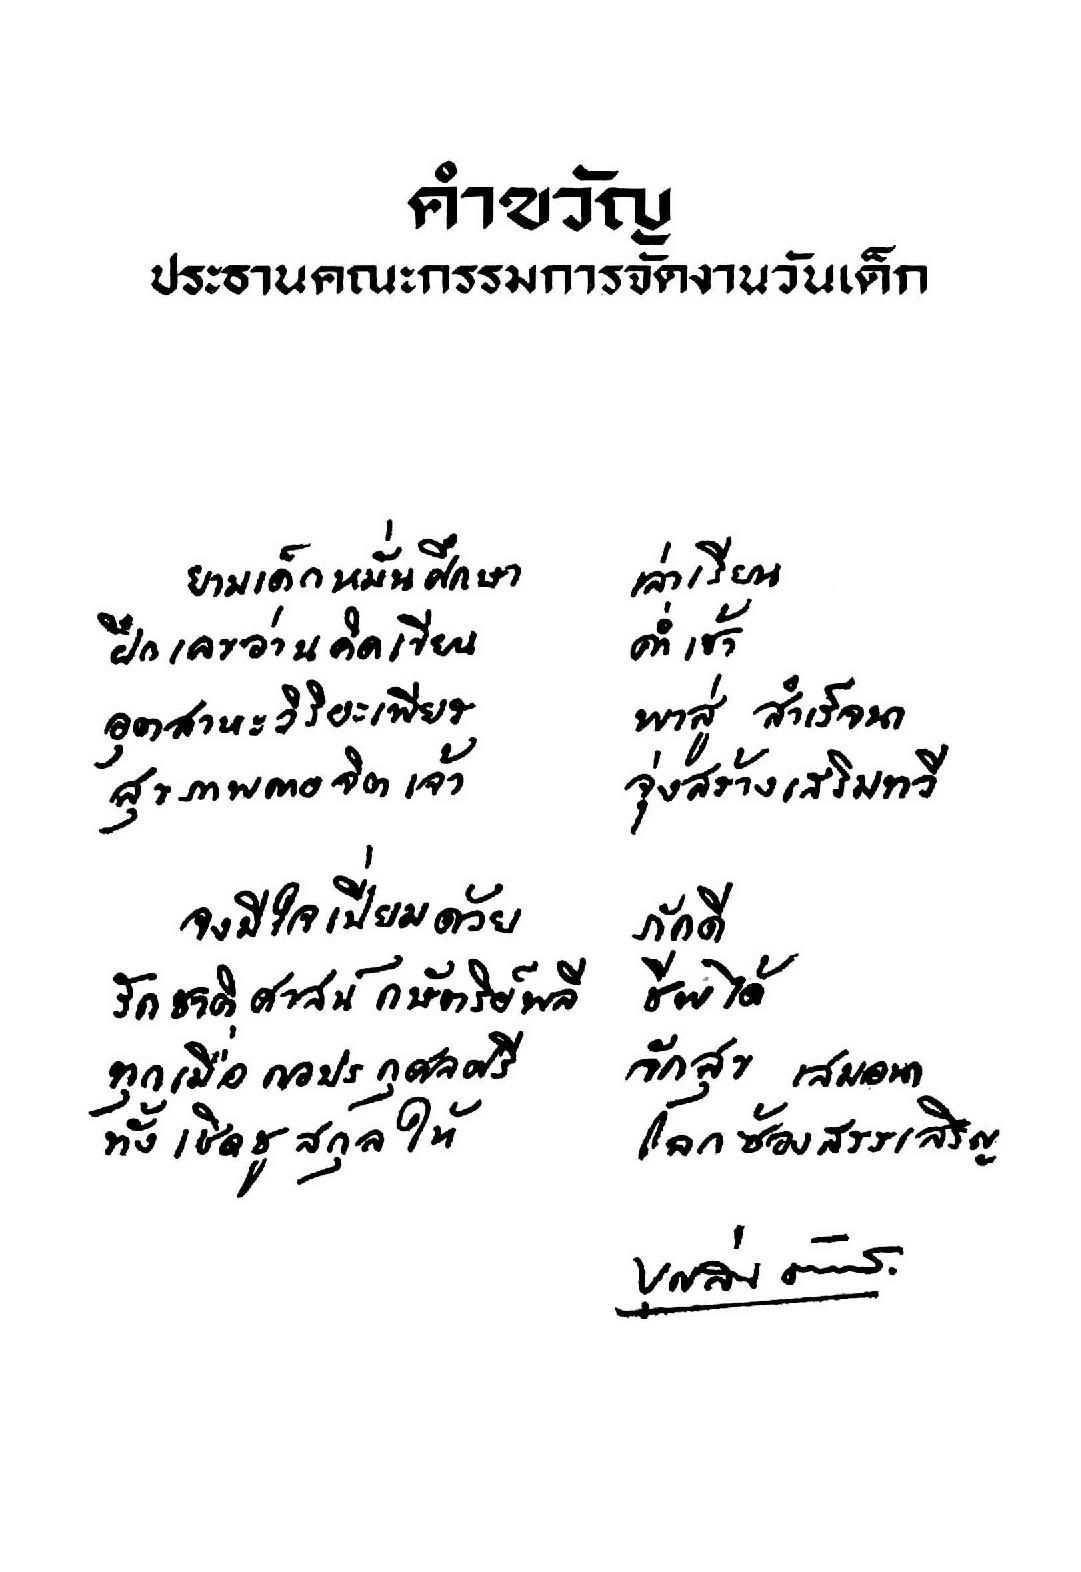 คำขวัญ
ประธานคณะกรรมการจัดงานวันเด็ก
ยามเด็กหมั่นศึกษา เล่าเรียน
ฝึกเลขอ่านคิดเขียน ค่ำเช้า
อุตสาหะวิริยะเพียร พาสู่ สำเร็จนา
สุขภาพกายจิตเจ้า จุ่งสร้างเสริมทวี
จงมีใจเปี่ยมด้วย ภักดี
รักชาติศาสน์กษัตริย์พลี ชีพได้
ทุกเมื่อกอปรกุศลศรี ภักสุข เสมอนา
ทั้งเชิดชูสกุลให้ โลกซ้องสรรเสริญ
บุญสิ่น